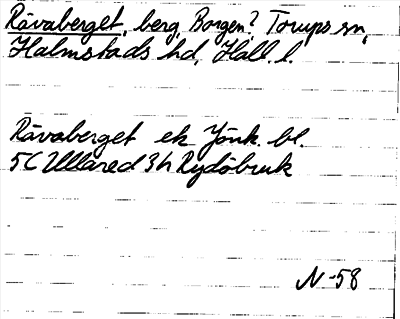 Rävaberget, berg, Borgen? Torups sn,
Halmstads hd, Hall. l.
Rävaberget ek Jönk. bl.
5C Ullared 3h Rydöbruk
N-58